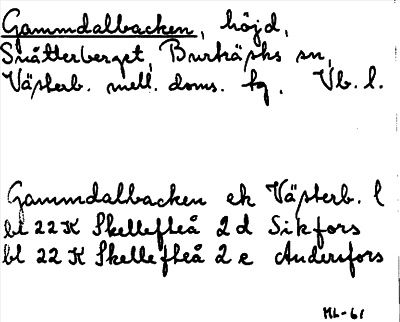 Gammdalbacken, höjd,
Snåtterberget, Burträsks sn,
Västerb. mell. doms. tg. Vb. l.
Gammdalbacken ek Västerb. l
bl 22 K Skellefteå 2 d Sikfors
bl 22 K Skellefteå 2 e Andersfors
ML-61